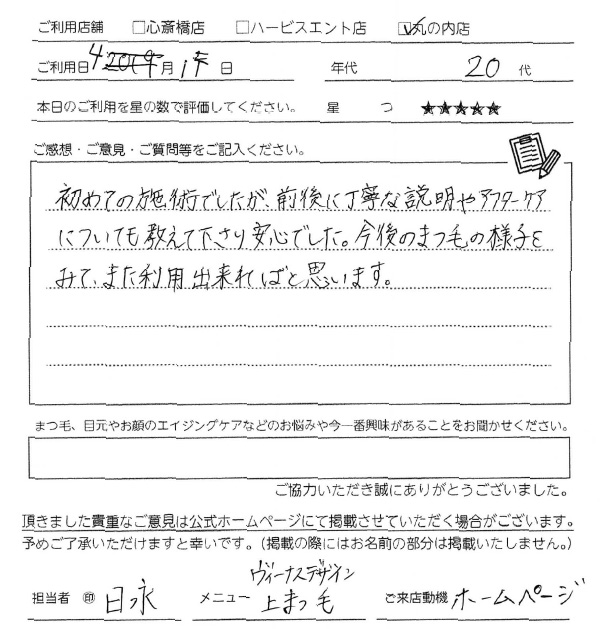 ご利用店舗 □心斎橋店 □ハービスエント店 ☑丸の内店
ご利用日 4 2019月 1 日 年代 20 代
本日のご利用を星の数で評価してください。 星 つ ★★★★★
ご感想・ご意見・ご質問等をご記入ください。
初めての施術でしたが、前後に丁寧な説明やアフターケア
についても教えて下さり安心でした。今後のまつ毛の様子を
みて、また利用出来ればと思います。
まつ毛、目元やお顔のエイジングケアなどのお悩みや今一番興味があることをお聞かせください。
ご協力いただき誠にありがとうございました。
頂きました貴重なご意見は公式ホームページにて掲載させていただく場合がございます。
予めご了承いただけますと幸いです。（掲載の際にはお名前の部分は掲載いたしません。）
ヴィーナスデザイン
担当者 ㊞ 日永 メニュー 上まつ毛 ご来店動機 ホームページ